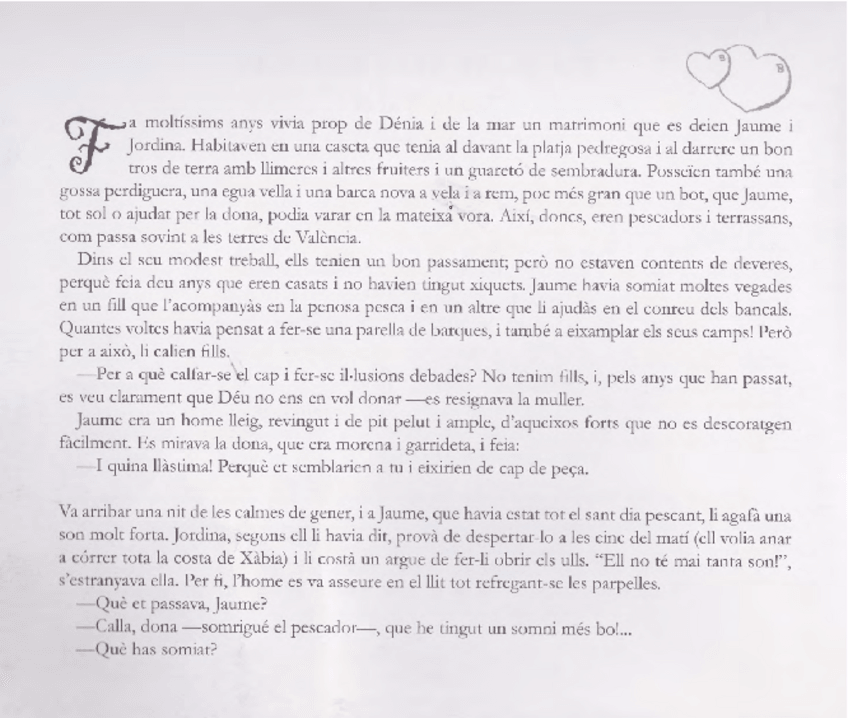 Fa moltíssims anys vivia prop de Dénia i de la mar un matrimoni que es deien Jaume i
Jordina. Habitaven en una caseta que tenia al davant la platja pedregosa i al darrere un bon
tros de terra amb llimeres i altres fruiters i un guaretó de sembradura. Posseïen també una
gossa perdiguera, una egua vella i una barca nova a vela i a rem, poc més gran que un bot, que Jaume,
tot sol o ajudat per la dona, podia varar en la mateixa vora. Així, doncs, eren pescadors i terrassans,
com passa sovint a les terres de València.
Dins el seu modest treball, ells tenien un bon passament; però no estaven contents de deveres,
perquè feia deu anys que eren casats i no havien tingut xiquets. Jaume havia somiat moltes vegades
en un fill que l'acompanyàs en la penosa pesca i en un altre que li ajudàs en el conreu dels bancals.
Quantes voltes havia pensat a fer-se una parella de barques, i també a eixamplar els seus camps! Però
per a això, li calien fills.
—Per a què calfar-se el cap i fer-se il·lusions debades? No tenim fills, i, pels anys que han passat,
es veu clarament que Déu no ens en vol donar —es resignava la muller.
Jaume era un home lleig, revingut i de pit pelut i ample, d'aqueixos forts que no es descoratgen
fàcilment. Es mirava la dona, que era morena i garrideta, i feia:
—I quina llàstima! Perquè et semblarien a tu i eixirien de cap de peça.
Va arribar una nit de les calmes de gener, i a Jaume, que havia estat tot el sant dia pescant, li agafà una
son molt forta. Jordina, segons ell li havia dit, provà de despertar-lo a les cinc del matí (ell volia anar
a córrer tota la costa de Xàbia) i li costà un argue de fer-li obrir els ulls. “Ell no té mai tanta son!”,
s'estranyava ella. Per fi, l'home es va asseure en el llit tot refregant-se les parpelles.
—Què et passava, Jaume?
—Calla, dona —somrigué el pescador—, que he tingut un somni més bo!...
—Què has somiat?